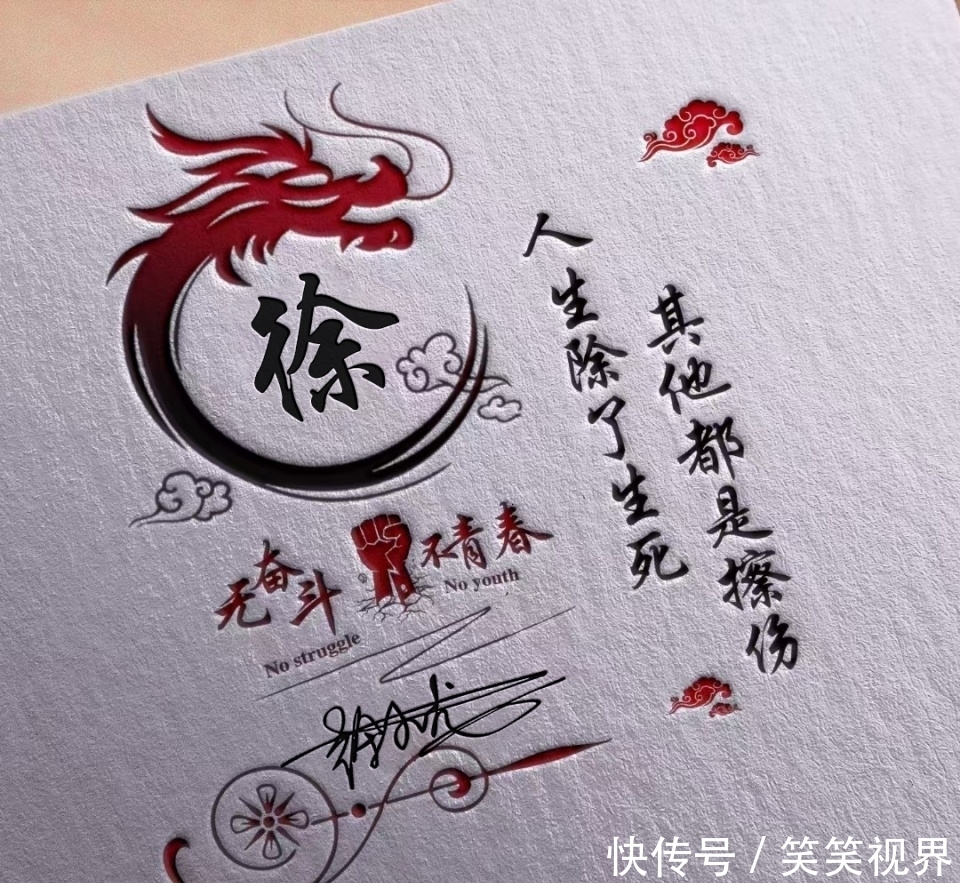 徐
人生除了生死
其他都是擦伤
无奋斗
不青春
No struggle
No youth
快传号 / 笑笑视界